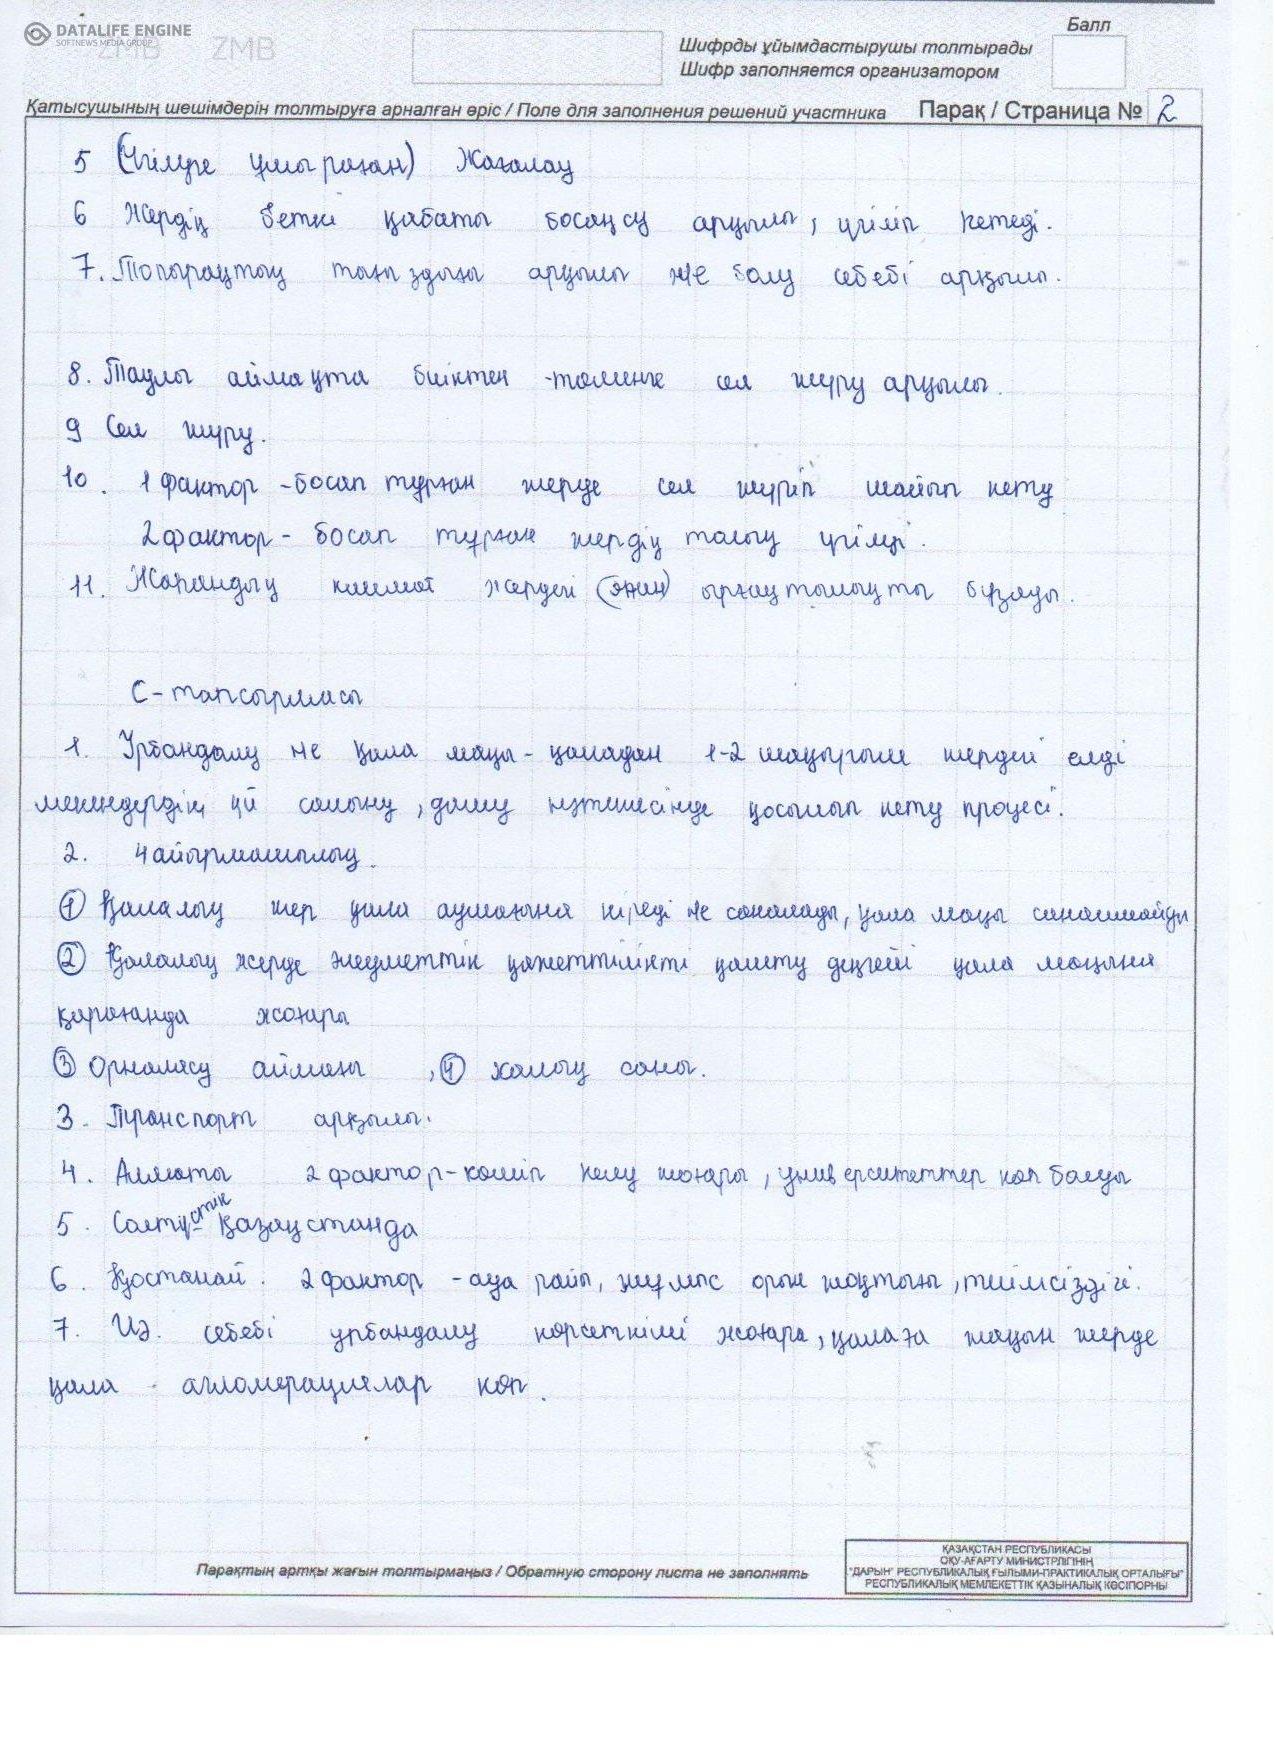 DATALIFE ENGINE
SOFTNEWS MEDIA GROUP
ZMB ZMB
Балл
Шифрды ұйымдастырушы толтырады
Шифр заполняется организатором
Қатысушының шешімдерін толтыруға арналған өріс / Поле для заполнения решений участника Парақ / Страница № 2
5 (Үгілуге ұшыраған) Жағалау
6 Жердің беткі қабаты босаңсу арқылы, үгіліп кетеді.
7. Топырақтың тығыздығы арқылы же болу себебі арқылы.
8. Таулы аймақта биіктен -төменге сел жүру арқылы.
9 Сел жүру.
10. 1 фактор -босап тұрған жерде сел жүріп шайып кету
2 фактор - босап тұрған жердің үгілуі.
11. Жаһандық климат жердегі ырғақтылықты бұзады.
С-тапсырмасы
1. Урбандалу не қала маңы - қаладан 1-2 шақырым жердегі елді
мекендердің үй салыну, даму нәтижесінде қосылып кету процесі.
2. 4 айырмашылық.
① Қалалық жер қала аумағына кіреді не саналады, қала маңы саналмайды
② Қалалық жерде әлеуметтік қажеттілікті қамту деңгейі қала маңына
қарағанда жоғары
③ Орналасу аймағы , ④ халық саны.
3. Транспорт арқылы.
4. Алматы 2 фактор - көшіп келу жоғары, университеттер көп болуы
5. Солтүстік Қазақстанда
6. Қостанай. 2 фактор - ауа райы, жұмыс орын жоқтығы, тиімсіздігі.
7. Иә. себебі урбандалу көрсеткіші жоғары, қалаға жақын жерде
қала - агломерациялар көп.
Парақтың артқы жағын толтырмаңыз / Обратную сторону листа не заполнять
ҚАЗАҚСТАН РЕСПУБЛИКАСЫ
ОҚУ-АҒАРТУ МИНИСТРЛІГІНІҢ
"ДАРЫН" РЕСПУБЛИКАЛЫҚ ҒЫЛЫМИ-ПРАКТИКАЛЫҚ ОРТАЛЫҒЫ"
РЕСПУБЛИКАЛЫҚ МЕМЛЕКЕТТІК ҚАЗЫНАЛЫҚ КӘСІПОРНЫ